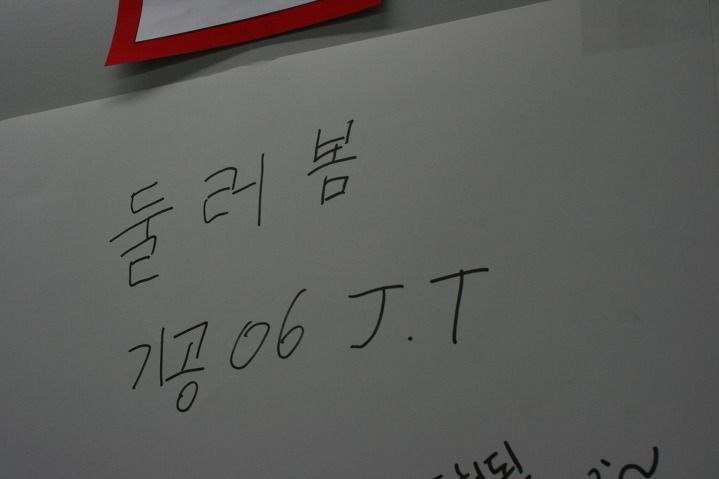 둘러봄
기공06 J.T